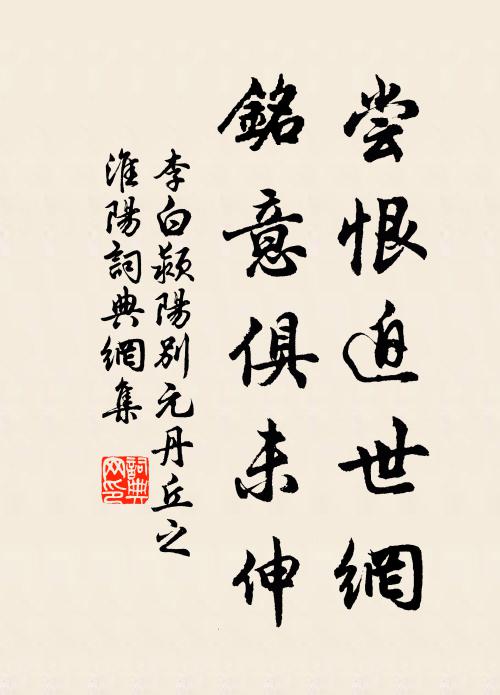 尝恨迫世網
銘意俱未伸
李白颍陽別元丹丘之
淮陽詞典網集
詞典网印